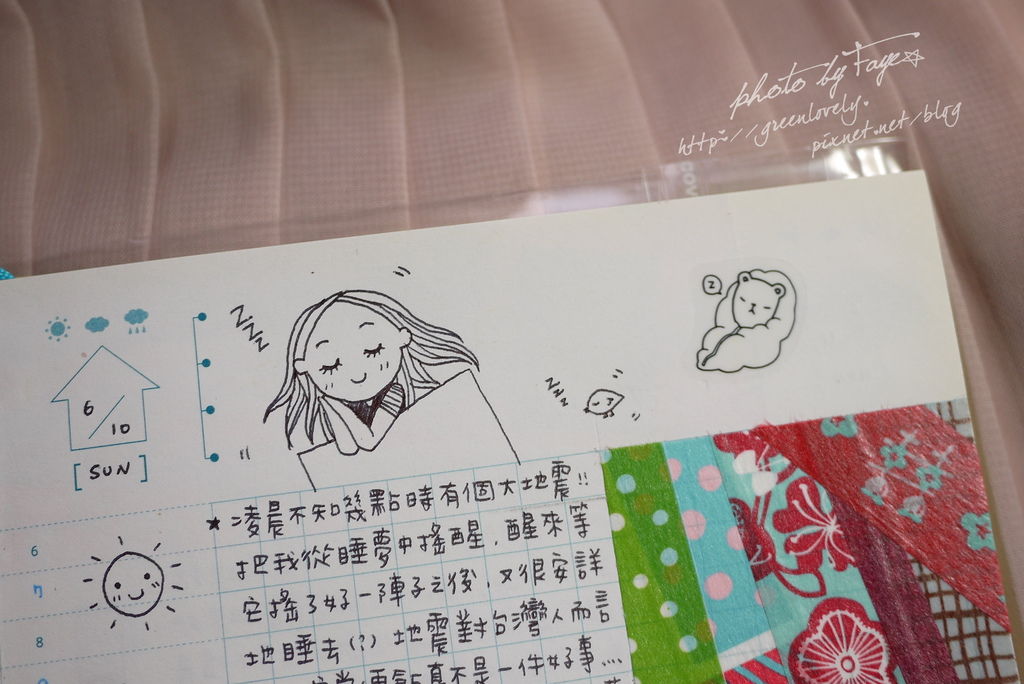 photo by Faye☆
http://greenlovely.
pixnet.net/blog
cov
z
zzz
zzz
6/10
[SUN]
★凌晨不知幾點時有個大地震!!
6
把我從睡夢中搖醒,醒來等
7
它搖了好一陣子之後,又很安詳
8
地睡去(?) 地震對台灣人而言
真不是一件好事...